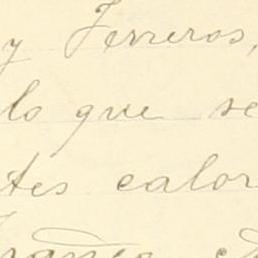 y Ferreros,
lo que se
tes calor